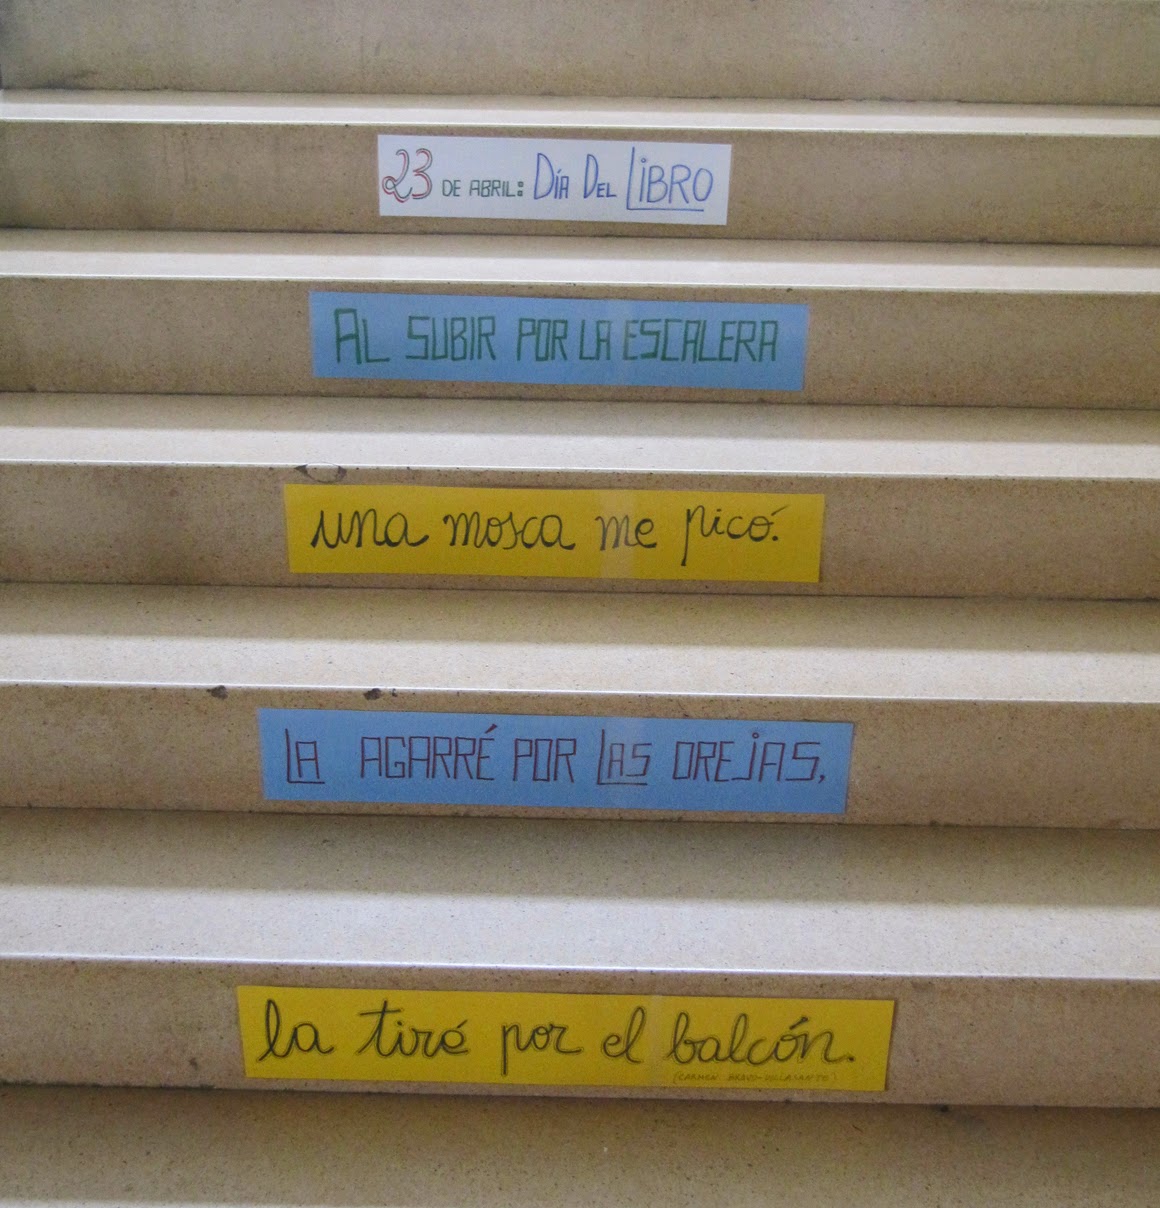 23 DE ABRIL: DÍA DEL LIBRO
AL SUBIR POR LA ESCALERA
una mosca me picó.
LA AGARRÉ POR LAS OREJAS,
la tiré por el balcón.
(CARMEN BRAVO-VILLASANTE)